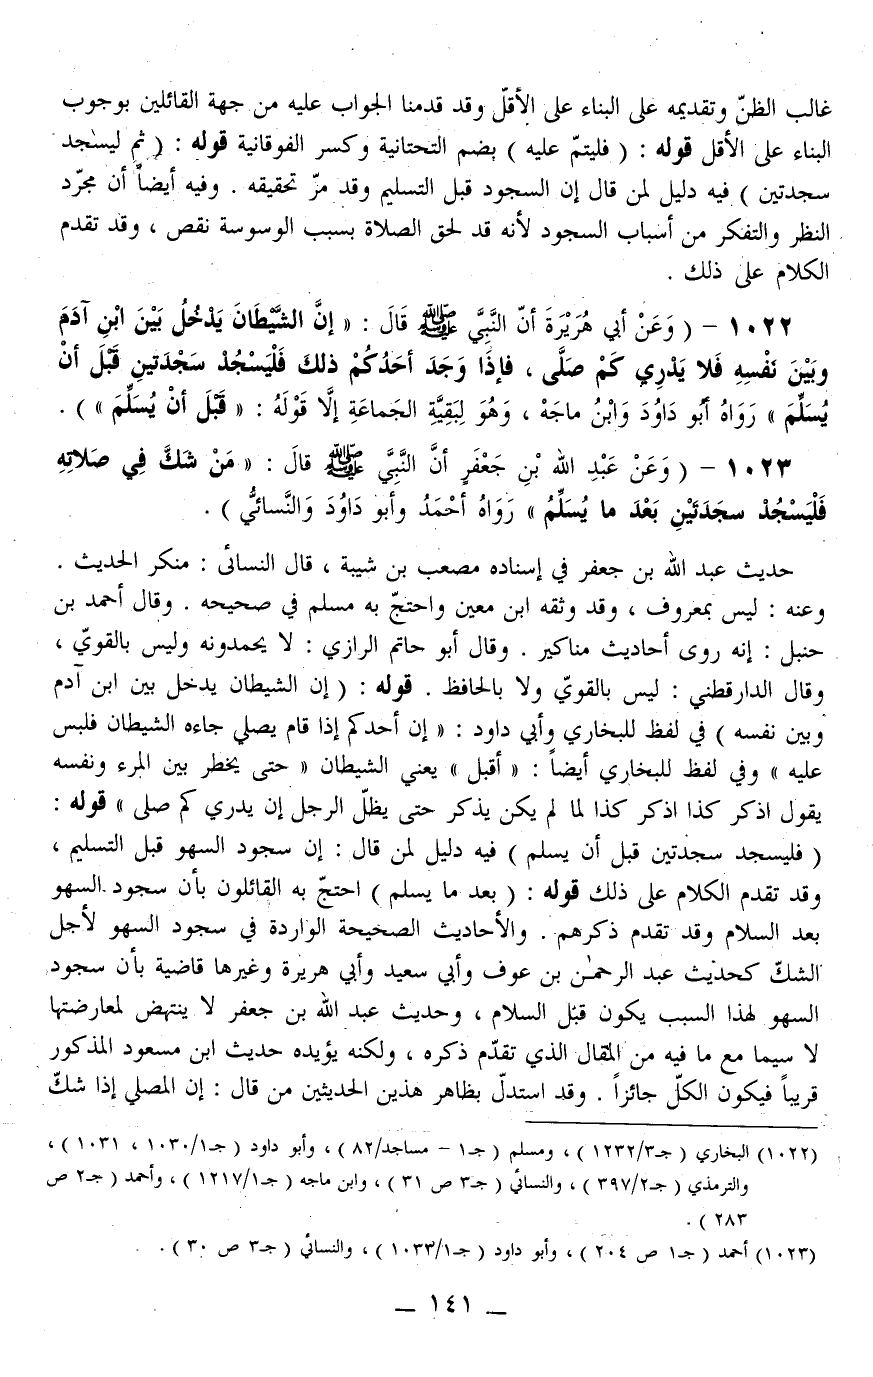 غالب الظنّ وتقديمه على البناء على الأقلّ وقد قدمنا الجواب عليه من جهة القائلين بوجوب
البناء على الأقل قوله : ( فليتمّ عليه ) بضم التحتانية وكسر الفوقانية قوله : ( ثم ليسجد
سجدتين ) فيه دليل لمن قال إن السجود قبل التسليم وقد مرّ تحقيقه . وفيه أيضاً أن مجرّد
النظر والتفكر من أسباب السجود لأنه قد لحق الصلاة بسبب الوسوسة نقص ، وقد تقدم
الكلام على ذلك .
١٠٢٢ – ( وَعَنْ أبي هُرَيْرَةَ أنّ النَّبيَّ ﷺ قَالَ : « إنَّ الشَّيْطَانَ يَدْخُلُ بَيْنَ ابْنِ آدَمَ
وبَيْنَ نَفْسِهِ فَلا يَدْرِي كَمْ صَلَّى ، فإذَا وَجَدَ أحَدُكُمْ ذلكَ فَلْيَسْجُدْ سَجْدَتينِ قَبْلَ أنْ
يُسَلِّمَ » رَوَاهُ أبُو دَاوُدَ وَابْنُ ماجَهْ ، وَهُوَ لِبَقِيَّةِ الجَماعَةِ إلَّا قَوْلَهُ : « قَبْلَ أنْ يُسَلِّمَ » ) .
١٠٢٣ – ( وَعَنْ عَبْدِ الله بْنِ جَعْفَرٍ أنَّ النَّبيَّ ﷺ قالَ : « مَنْ شَكَّ فِي صَلاتِهِ
فَلْيَسْجُدْ سجَدَتَيْنِ بَعْدَ ما يُسَلِّمُ » رَوَاهُ أحْمَدُ وأبو دَاوُدَ وَالنَّسائيُّ ) .
حديث عبد الله بن جعفر في إسناده مصعب بن شيبة ، قال النسائى : منكر الحديث .
وعنه : ليس بمعروف ، وقد وثقه ابن معين واحتجّ به مسلم في صحيحه . وقال أحمد بن
حنبل : إنه روى أحاديث مناكير . وقال أبو حاتم الرازي : لا يحمدونه وليس بالقويّ ،
وقال الدارقطني : ليس بالقويّ ولا بالحافظ . قوله : ( إن الشيطان يدخل بين ابن آدم
وبين نفسه ) في لفظ للبخاري وأبي داود : « إن أحدكم إذا قام يصلي جاءه الشيطان فلبس
عليه » وفي لفظ للبخاري أيضاً : « أقبل » يعني الشيطان « حتى يخطر بين المرء ونفسه
يقول اذكر كذا اذكر كذا لما لم يكن يذكر حتى يظلّ الرجل إن يدري كم صلى » قوله :
( فليسجد سجدتين قبل أن يسلم ) فيه دليل لمن قال : إن سجود السهو قبل التسليم ،
وقد تقدم الكلام على ذلك قوله : ( بعد ما يسلم ) احتجّ به القائلون بأن سجود السهو
بعد السلام وقد تقدم ذكرهم . والأحاديث الصحيحة الواردة في سجود السهو لأجل
الشكّ كحديث عبد الرحمٰن بن عوف وأبي سعيد وأبي هريرة وغيرها قاضية بأن سجود
السهو لهذا السبب يكون قبل السلام ، وحديث عبد الله بن جعفر لا ينتهض لمعارضتها
لا سيما مع ما فيه من المقال الذي تقدّم ذكره ، ولكنه يؤيده حديث ابن مسعود المذكور
قريباً فيكون الكلّ جائزاً . وقد استدلّ بظاهر هذين الحديثين من قال : إن المصلي إذا شكّ
(١٠٢٢) البخاري ( جـ١٢٣٢/٣ ) ، ومسلم ( جـ١ – مساجد/٨٢ ) ، وأبو داود ( جـ١٠٣٠/١ ، ١٠٣١ ) ،
والترمذي ( جـ٣٩٧/٢ ) ، والنسائي ( جـ٣ ص ٣١ ) ، وابن ماجه ( جـ١٢١٧/١ ) ، وأحمد ( جـ٢ ص
٢٨٣ ) .
(١٠٢٣) أحمد ( جـ١ ص ٢٠٤ ) ، وأبو داود ( جـ١٠٣٣/١ ) ، والنسائي ( جـ٣ ص ٣٠ ) .
– ١٤١ –